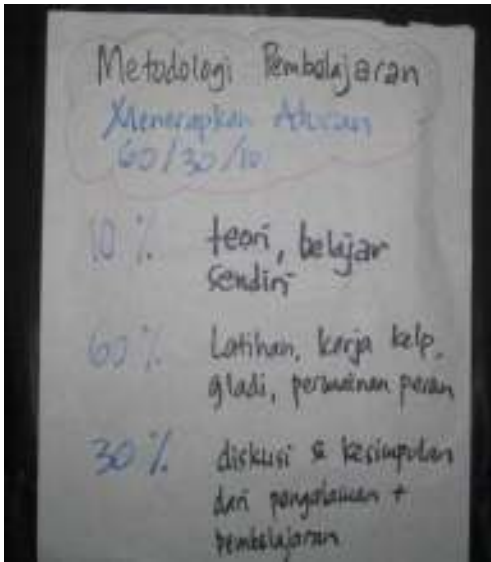 Metodologi Pembelajaran
Menerapkan Aturan
60/30/10
10 % teori, belajar
sendiri
60 % Latihan, kerja kelp,
gladi, permainan peran
30 % diskusi & kesimpulan
dari pengalaman +
pembelajaran